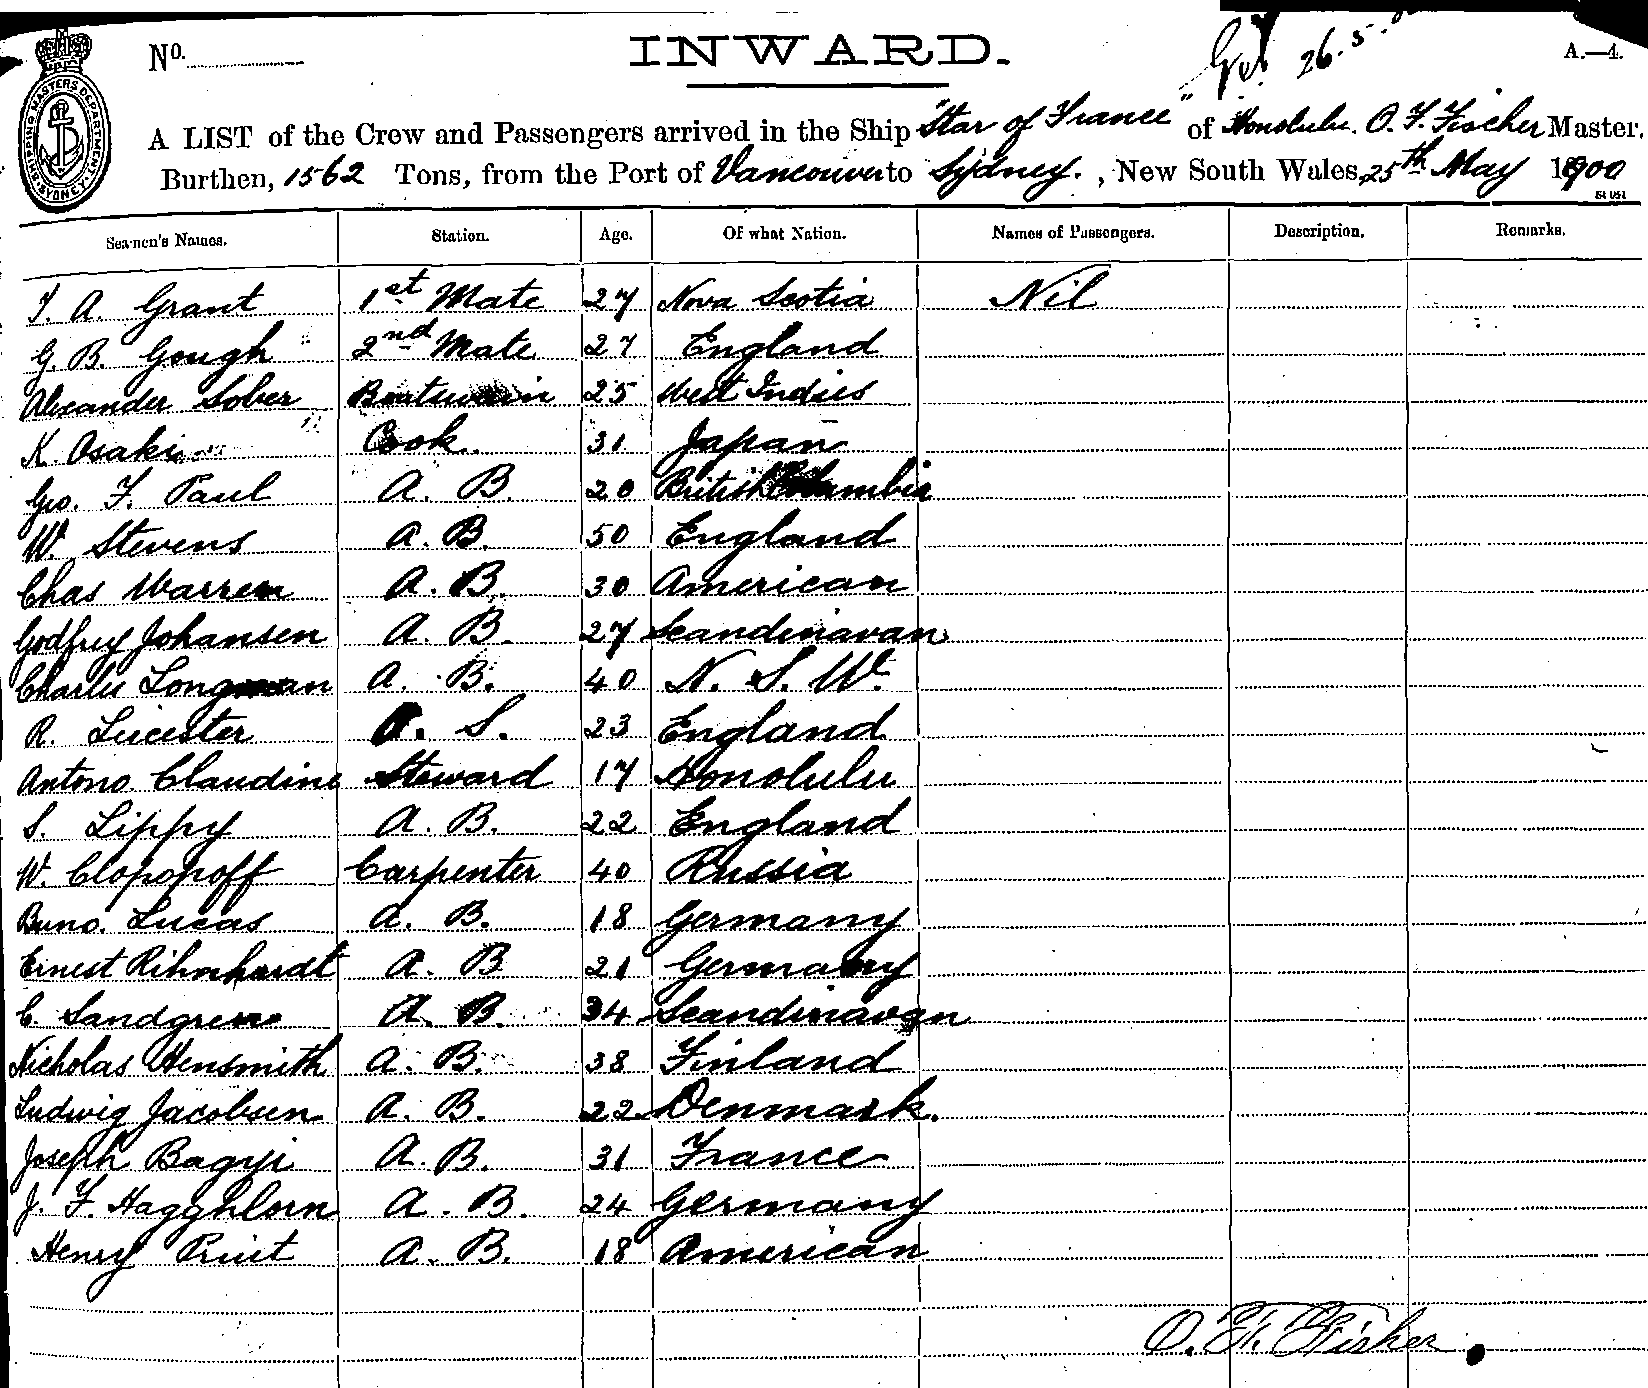 No.
INWARD.
26.5.
A.—4.
SHIPPING MASTERS DEPARTMENT SYDNEY
A LIST of the Crew and Passengers arrived in the Ship "Star of France" of Honolulu. O. F. Fischer Master.
Burthen, 1562 Tons, from the Port of Vancouver to Sydney. , New South Wales, 25th May 1900
Seamen's Names. Station. Age. Of what Nation. Names of Passengers. Description. Remarks.
T. A. Grant 1st Mate 27 Nova Scotia Nil
G. B. Gough 2nd Mate 27 England
Alexander Sober Boatswain 25 West Indies
K. Osaki Cook. 31 Japan
Geo. F. Paul A. B. 20 British Columbia
W. Stevens A. B. 50 England
Chas Warren A. B. 30 American
Godfrey Johansen A. B. 27 Scandinavan
Charlie Longman A. B. 40 N. S. W.
R. Leicester O. S. 23 England
Antono Claudine Steward 17 Honolulu
S. Lippy A. B. 22 England
W. Clopopoff Carpenter 40 Russia
Buno. Lucas A. B. 18 Germany
Ernest Rihnhardt A. B 21 Germany
C. Sandgren A. B. 34 Scandinavan
Nicholas Hensmith A. B. 38 Finland
Ludwig Jacobsen A. B. 22 Denmark.
Joseph Bagyi A. B. 31 France
J. F. Hagghlorn A. B. 24 Germany
Henry Pruit A. B. 18 American
O. F. Fisher.